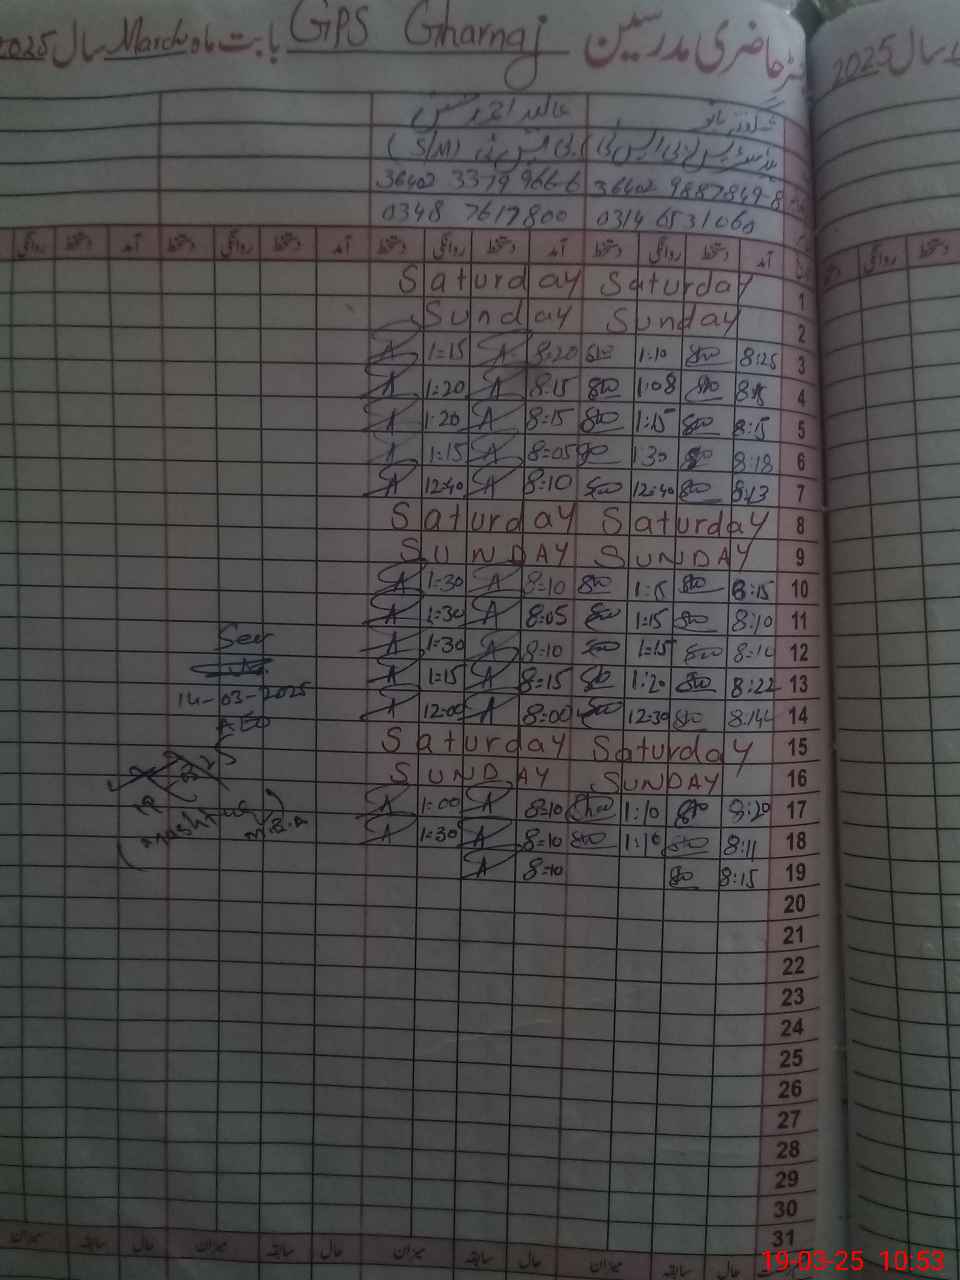 رجسٹر حاضری مدرسین GPS Gharnaj بابت ماہ March سال 2025
سال 2025
شگفتہ بانو
(S/M)
36402 9887849-8 36402 3379 966-6
0314 6531060 0348 7617800
آمد دستخط روانگی دستخط آمد دستخط روانگی دستخط آمد دستخط روانگی دستخط آمد دستخط روانگی
1 Saturday Saturday
2 Sunday Sunday
3 8:25 1:10 8:20 A 1=15 A
4 8:15 1:08 8:15 A 1:20 A
5 8:15 1:15 8:15 A 1:20 A
6 8:18 1:30 8=05 A 1:15 A
7 8:13 12:40 8:10 A 12:40 A
8 Saturday Saturday
9 SUNDAY SUNDAY
10 8:15 1:15 8=10 A 1=30 A
11 8:10 1:15 8:05 A 1:30 A
12 8:10 1:15 8=10 A 1:30 A
13 8:22 1:20 8=15 A 1:15 A
14 8:14 12:30 8=00 A 12:00 A
15 Saturday Saturday
16 SUNDAY SUNDAY
17 8:20 1:10 8=10 A 1=00 A
18 8:11 1:10 8=10 A 1=30 A
19 8:15 8=10 A
20
21
22
23
24
25
26
27
28
29
30
31
Seen
14-03-2025
AEO
میزان سابقہ حال میزان سابقہ حال میزان سابقہ حال میزان
19-03-25 10:53